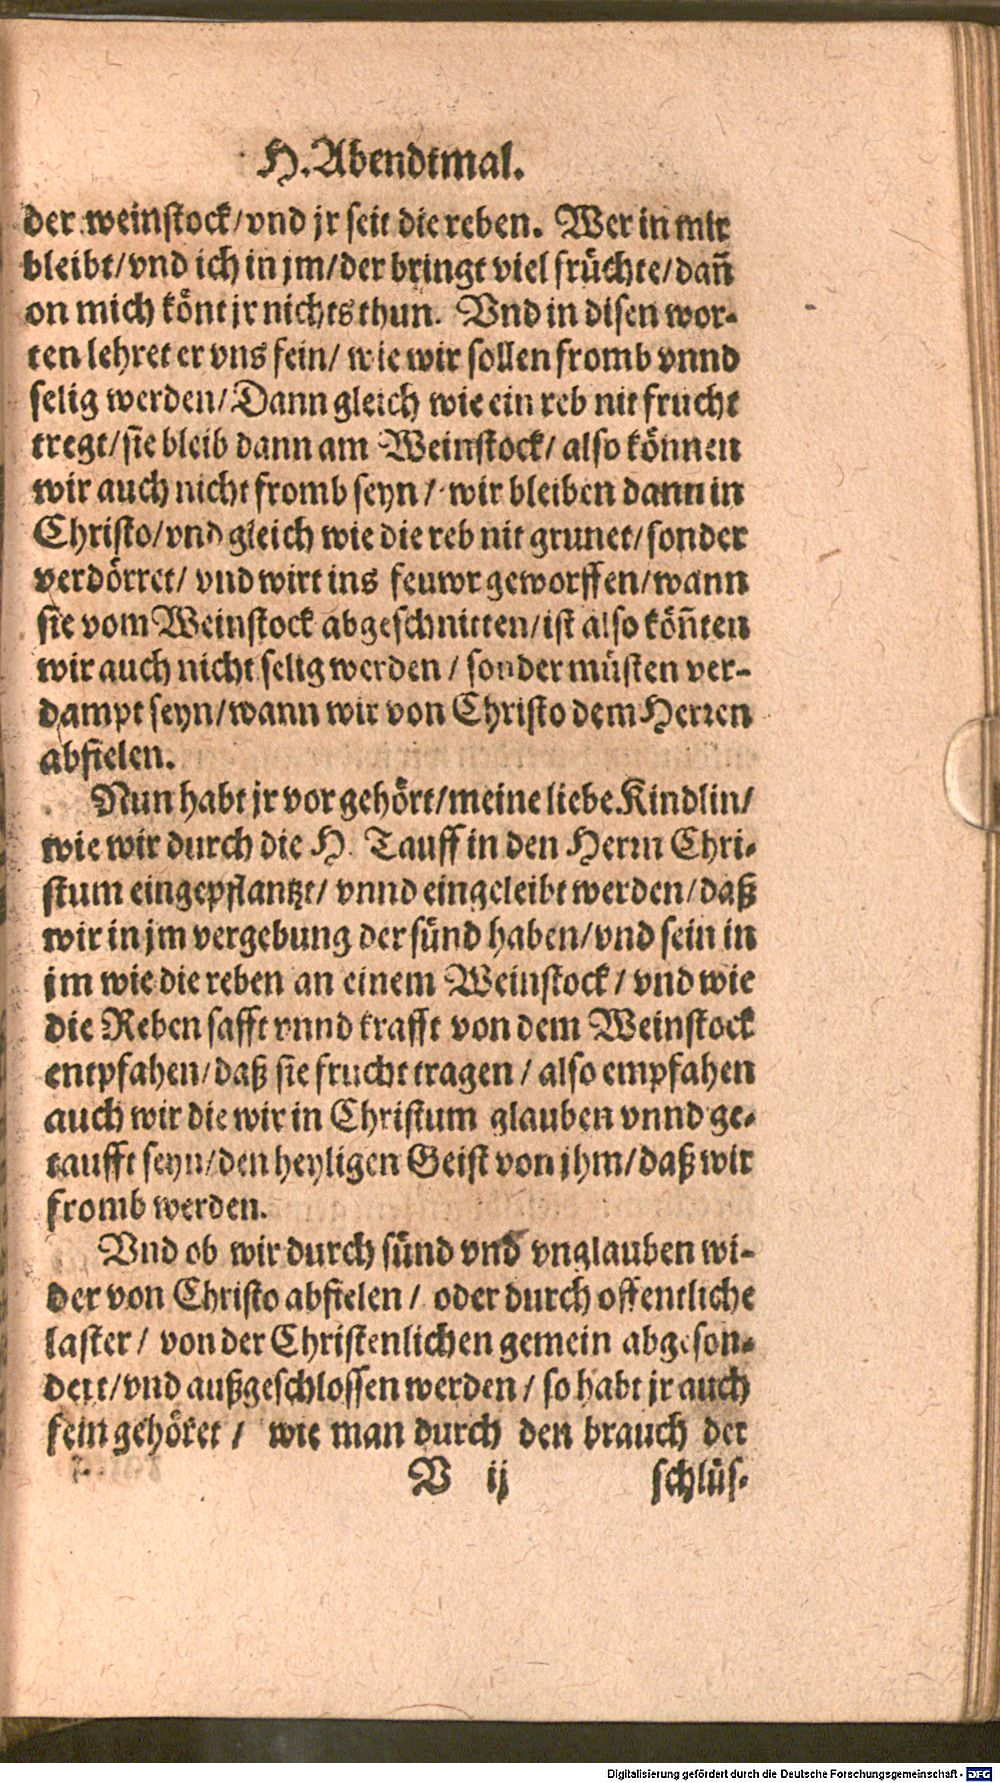 H. Abendtmal.
der weinstock/vnd jr seit die reben. Wer in mir
bleibt/vnd ich in jm/der bringt viel früchte/dañ
on mich könt jr nichts thun. Vnd in disen wor-
ten lehret er vns fein/ wie wir sollen fromb vnnd
selig werden/Dann gleich wie ein reb nit frucht
tregt/sie bleib dann am Weinstock/ also können
wir auch nicht fromb seyn/ wir bleiben dann in
Christo/vnd gleich wie die reb nit grunet/sonder
verdörret/ vnd wirt ins feuwr geworffen/wann
sie vom Weinstock abgeschnitten/ist also köñten
wir auch nicht selig werden/ sonder müsten ver-
dampt seyn/wann wir von Christo dem Herren
abfielen.
Nun habt jr vor gehört/meine liebe Kindlin/
wie wir durch die H. Tauff in den Herrn Chri-
stum eingepflantzt/ vnnd eingeleibt werden/daß
wir in jm vergebung der sünd haben/vnd sein in
jm wie die reben an einem Weinstock/ vnd wie
die Reben safft vnnd krafft von dem Weinstock
entpfahen/daß sie frucht tragen/ also empfahen
auch wir die wir in Christum glauben vnnd ge-
taufft seyn/den heyligen Geist von jhm/daß wir
fromb werden.
Vnd ob wir durch sünd vnd vnglauben wi-
der von Christo abfielen/ oder durch offentliche
laster/ von der Christenlichen gemein abgeson-
dert/vnd außgeschlossen werden/ so habt jr auch
fein gehöret/ wie man durch den brauch der
V ij schlüs-
Digitalisierung gefördert durch die Deutsche Forschungsgemeinschaft - DFG